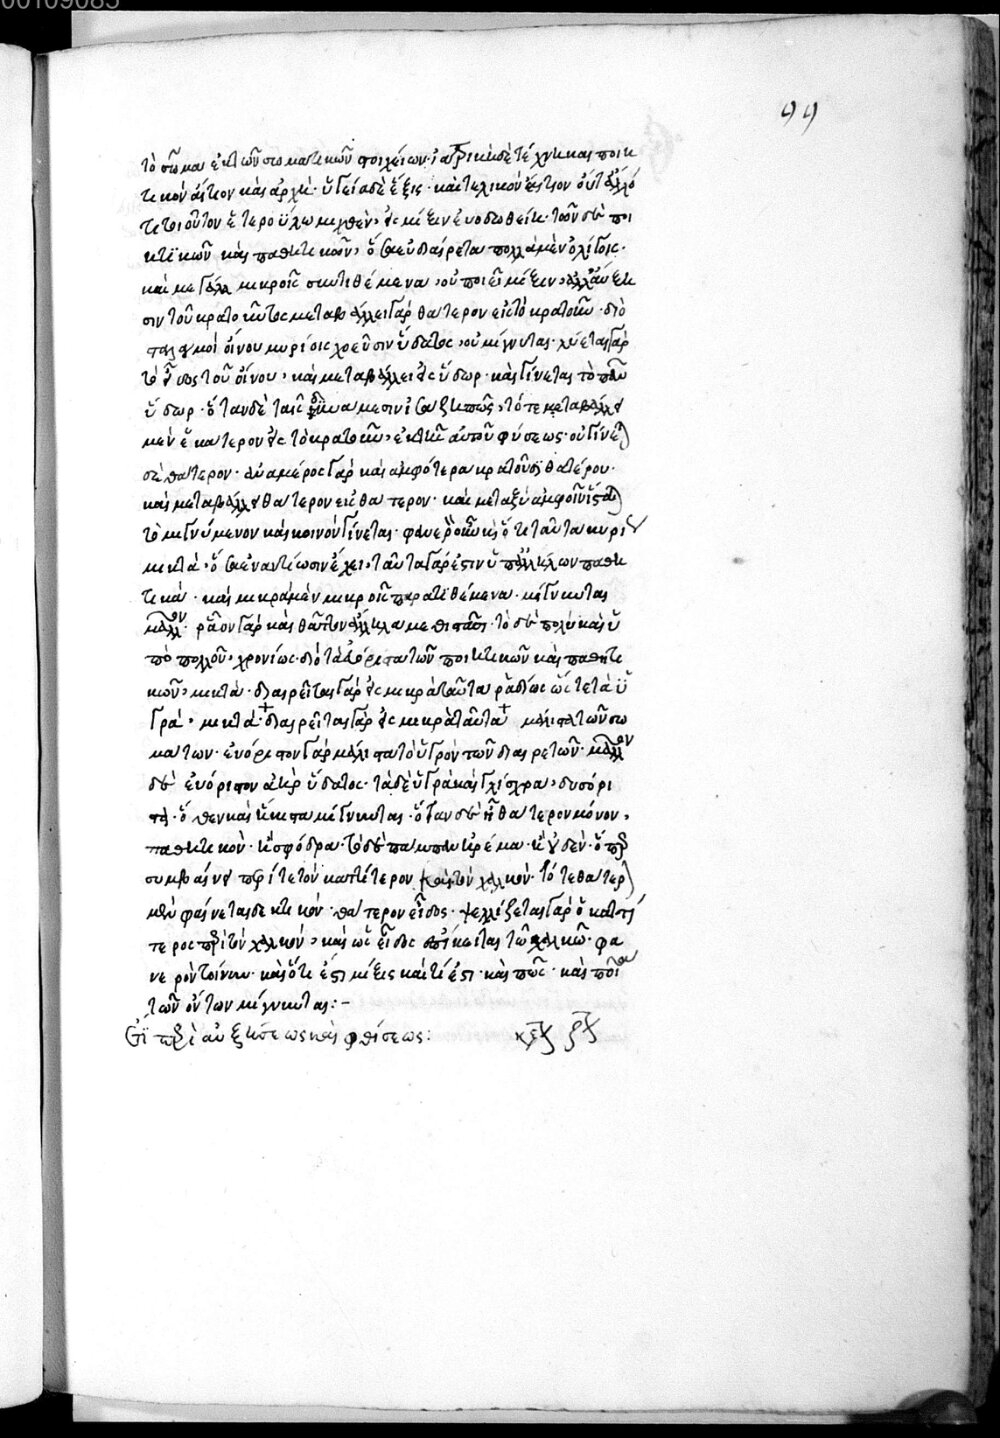 00109085
99
τὸ σῶμα ἐκ τῶν σωματικῶν στοιχείων· ἰατρικὴ δὲ τέχνη καὶ ποιη
τικὸν αἴτιον καὶ ἀρχή· ὑγεία δὲ ἕξις· καὶ τελικὸν αἴτιον
ἕτερο ὕλω μιχθὲν, εἰς μίξιν εὐοδωθείη· τῶν δὲ ποι
ητικῶν καὶ παθητικῶν, ὅσα εὐδιαίρετα πολλὰ μὲν ὀλίγοις·
καὶ μεγάλα μικροῖς συντιθέμενα, οὐ ποιεῖ μίξιν, ἀλλ' αὔξη
σιν τοῦ κρατοῦντος μεταβάλλει γὰρ θάτερον εἰς τὸ κρατοῦν· διὸ
σταλαγμοὶ οἴνου μυρίοις χοεῦσιν ὕδατος, οὐ μίγνυται· λύεται γὰρ
τὸ εἶδος τοῦ οἴνου, καὶ μεταβάλλει εἰς ὕδωρ· καὶ γίνεται τὸ πᾶν
ὕδωρ· ὅταν δὲ ταῖς δυνάμεσιν ἰσάζη πῶς, τότε μεταβάλλει
μὲν ἑκάτερον εἰς τὸ κρατοῦν, ἐκ τῆς αὐτοῦ φύσεως· οὐ γίνεται
δὲ θάτερον· ἀνὰ μέρος γὰρ καὶ ἀμφότερα κρατοῦσι θατέρου·
καὶ μεταβάλλει θάτερον εἰς θάτερον· καὶ μεταξὺ ἀμφοῖν
τὸ μιγνύμενον καὶ κοινὸν γίνεται· φανερὸν οὖν ὅτι ταῦτα
μικτὰ, ὅσα ἐναντίωσιν ἔχει, ταῦτα γάρ ἐστιν ὑπ' ἀλλήλων παθη
τικά· καὶ μικρὰ μὲν μικροῖς παρατιθέμενα· μίγνυται
μᾶλλον· ῥᾷον γὰρ καὶ θᾶττον ἄλληλα μεθίστασι· τὸ δὲ πολὺ καὶ ὑ
πὸ πολλοῦ, χρονίως· διὸ τὰ εὐόριστα τῶν ποιητικῶν καὶ παθητι
κῶν, μικτά· διαιρεῖται γὰρ εἰς μικρὰ ταῦτα ῥαδίως ὥστε τὰ ὑ
γρά, μικτά· διαιρεῖται γὰρ εἰς μικρὰ ταῦτα μάλιστα τῶν σω
μάτων· εὐόριστον γὰρ μάλιστα τὸ ὑγρὸν τῶν διαιρετῶν· μᾶλλον
δὲ εὐόριστον ἀὴρ ὕδατος· τὰ δὲ ὑγρὰ καὶ γλίσχρα, δυσόρι
στα· ὅθεν καὶ ἥκιστα μίγνυται· ὅταν δὲ ᾖ θάτερον μόνον,
παθητικὸν· ἢ σφόδρα· τὸ δὲ πάμπαν ἠρέμα· ἢ οὐδέν· ὅπερ
συμβαίνει περί τε τὸν καττίτερον καὶ τὸν χαλκόν· τότε θάτερον
μὲν φαίνεται δεκτικόν· θάτερον εἶδος· ψελλίζεται γὰρ ὁ καττί
τερος πρὸς τὸν χαλκόν, καὶ ὡς εἶδος ἐπίκειται τῷ χαλκῷ· φα
νερὸν τοίνυν· καὶ ὅτι ἐστι μίξις καὶ τί ἐστι· καὶ πῶς· καὶ ποίων
τῶν ὄντων μίγνυται:–
περὶ αὐξήσεως καὶ φθίσεως: